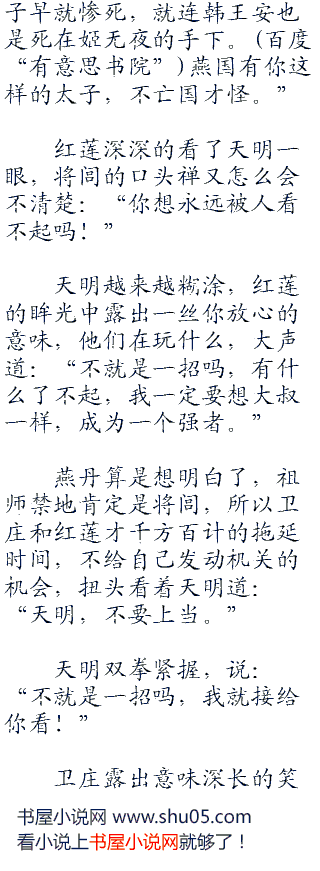 子早就惨死，就连韩王安也
是死在姬无夜的手下。(百度
“有意思书院”)燕国有你这
样的太子，不亡国才怪。”
红莲深深的看了天明一
眼，将闾的口头禅又怎么会
不清楚：“你想永远被人看
不起吗！”
天明越来越糊涂，红莲
的眸光中露出一丝你放心的
意味，他们在玩什么，大声
道：“不就是一招吗，有什
么了不起，我一定要想大叔
一样，成为一个强者。”
燕丹算是想明白了，祖
师禁地肯定是将闾，所以卫
庄和红莲才千方百计的拖延
时间，不给自己发动机关的
机会，扭头看着天明道：
“天明，不要上当。”
天明双拳紧握，说：
“不就是一招吗，我就接给
你看！”
卫庄露出意味深长的笑
书屋小说网 www.shu05.com
看小说上书屋小说网就够了！